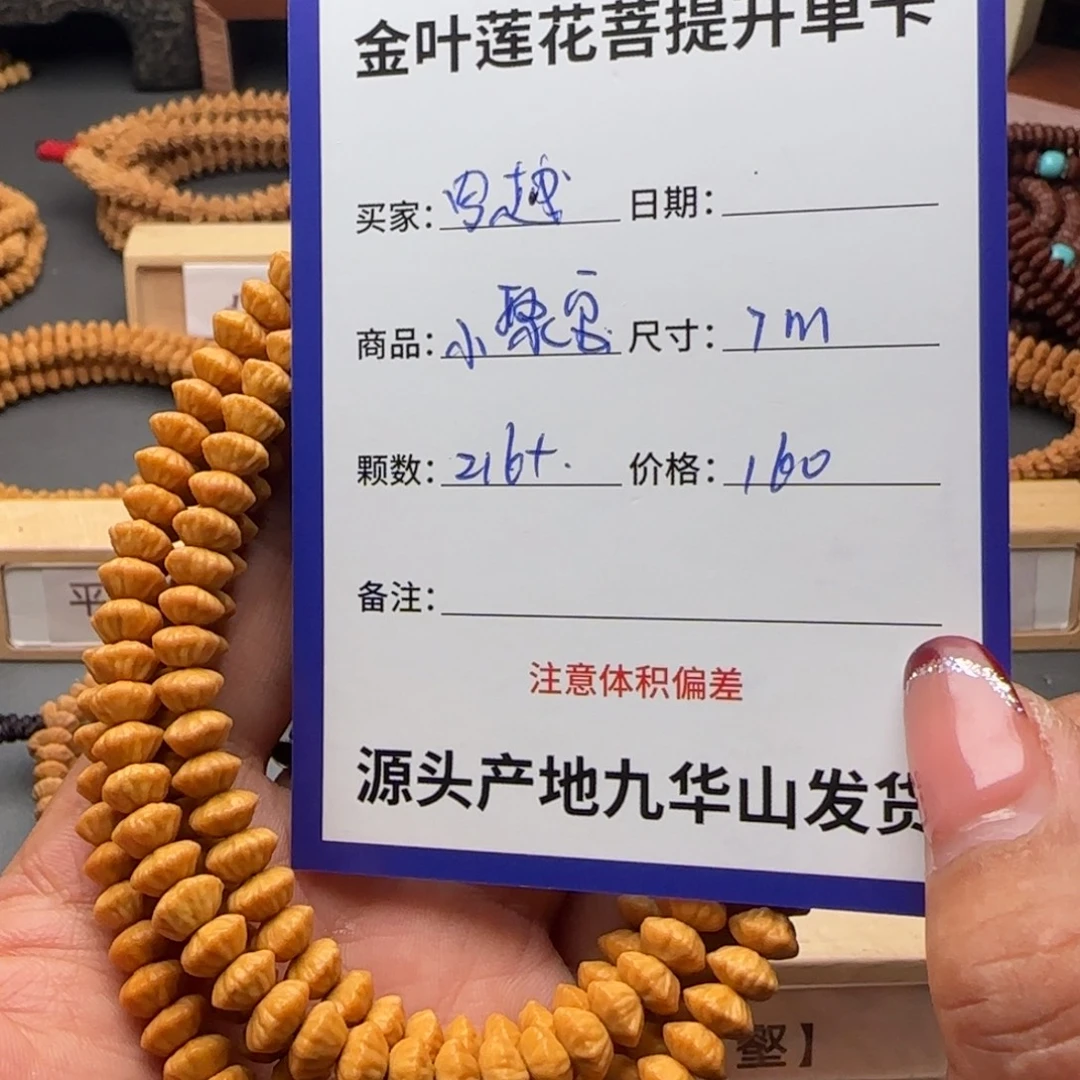 金叶莲花菩提升单卡
买家: 日期:
商品: 小聚宝 尺寸: 7m
颗数: 216+. 价格: 160
备注:
注意体积偏差
源头产地九华山发货
平
壑】